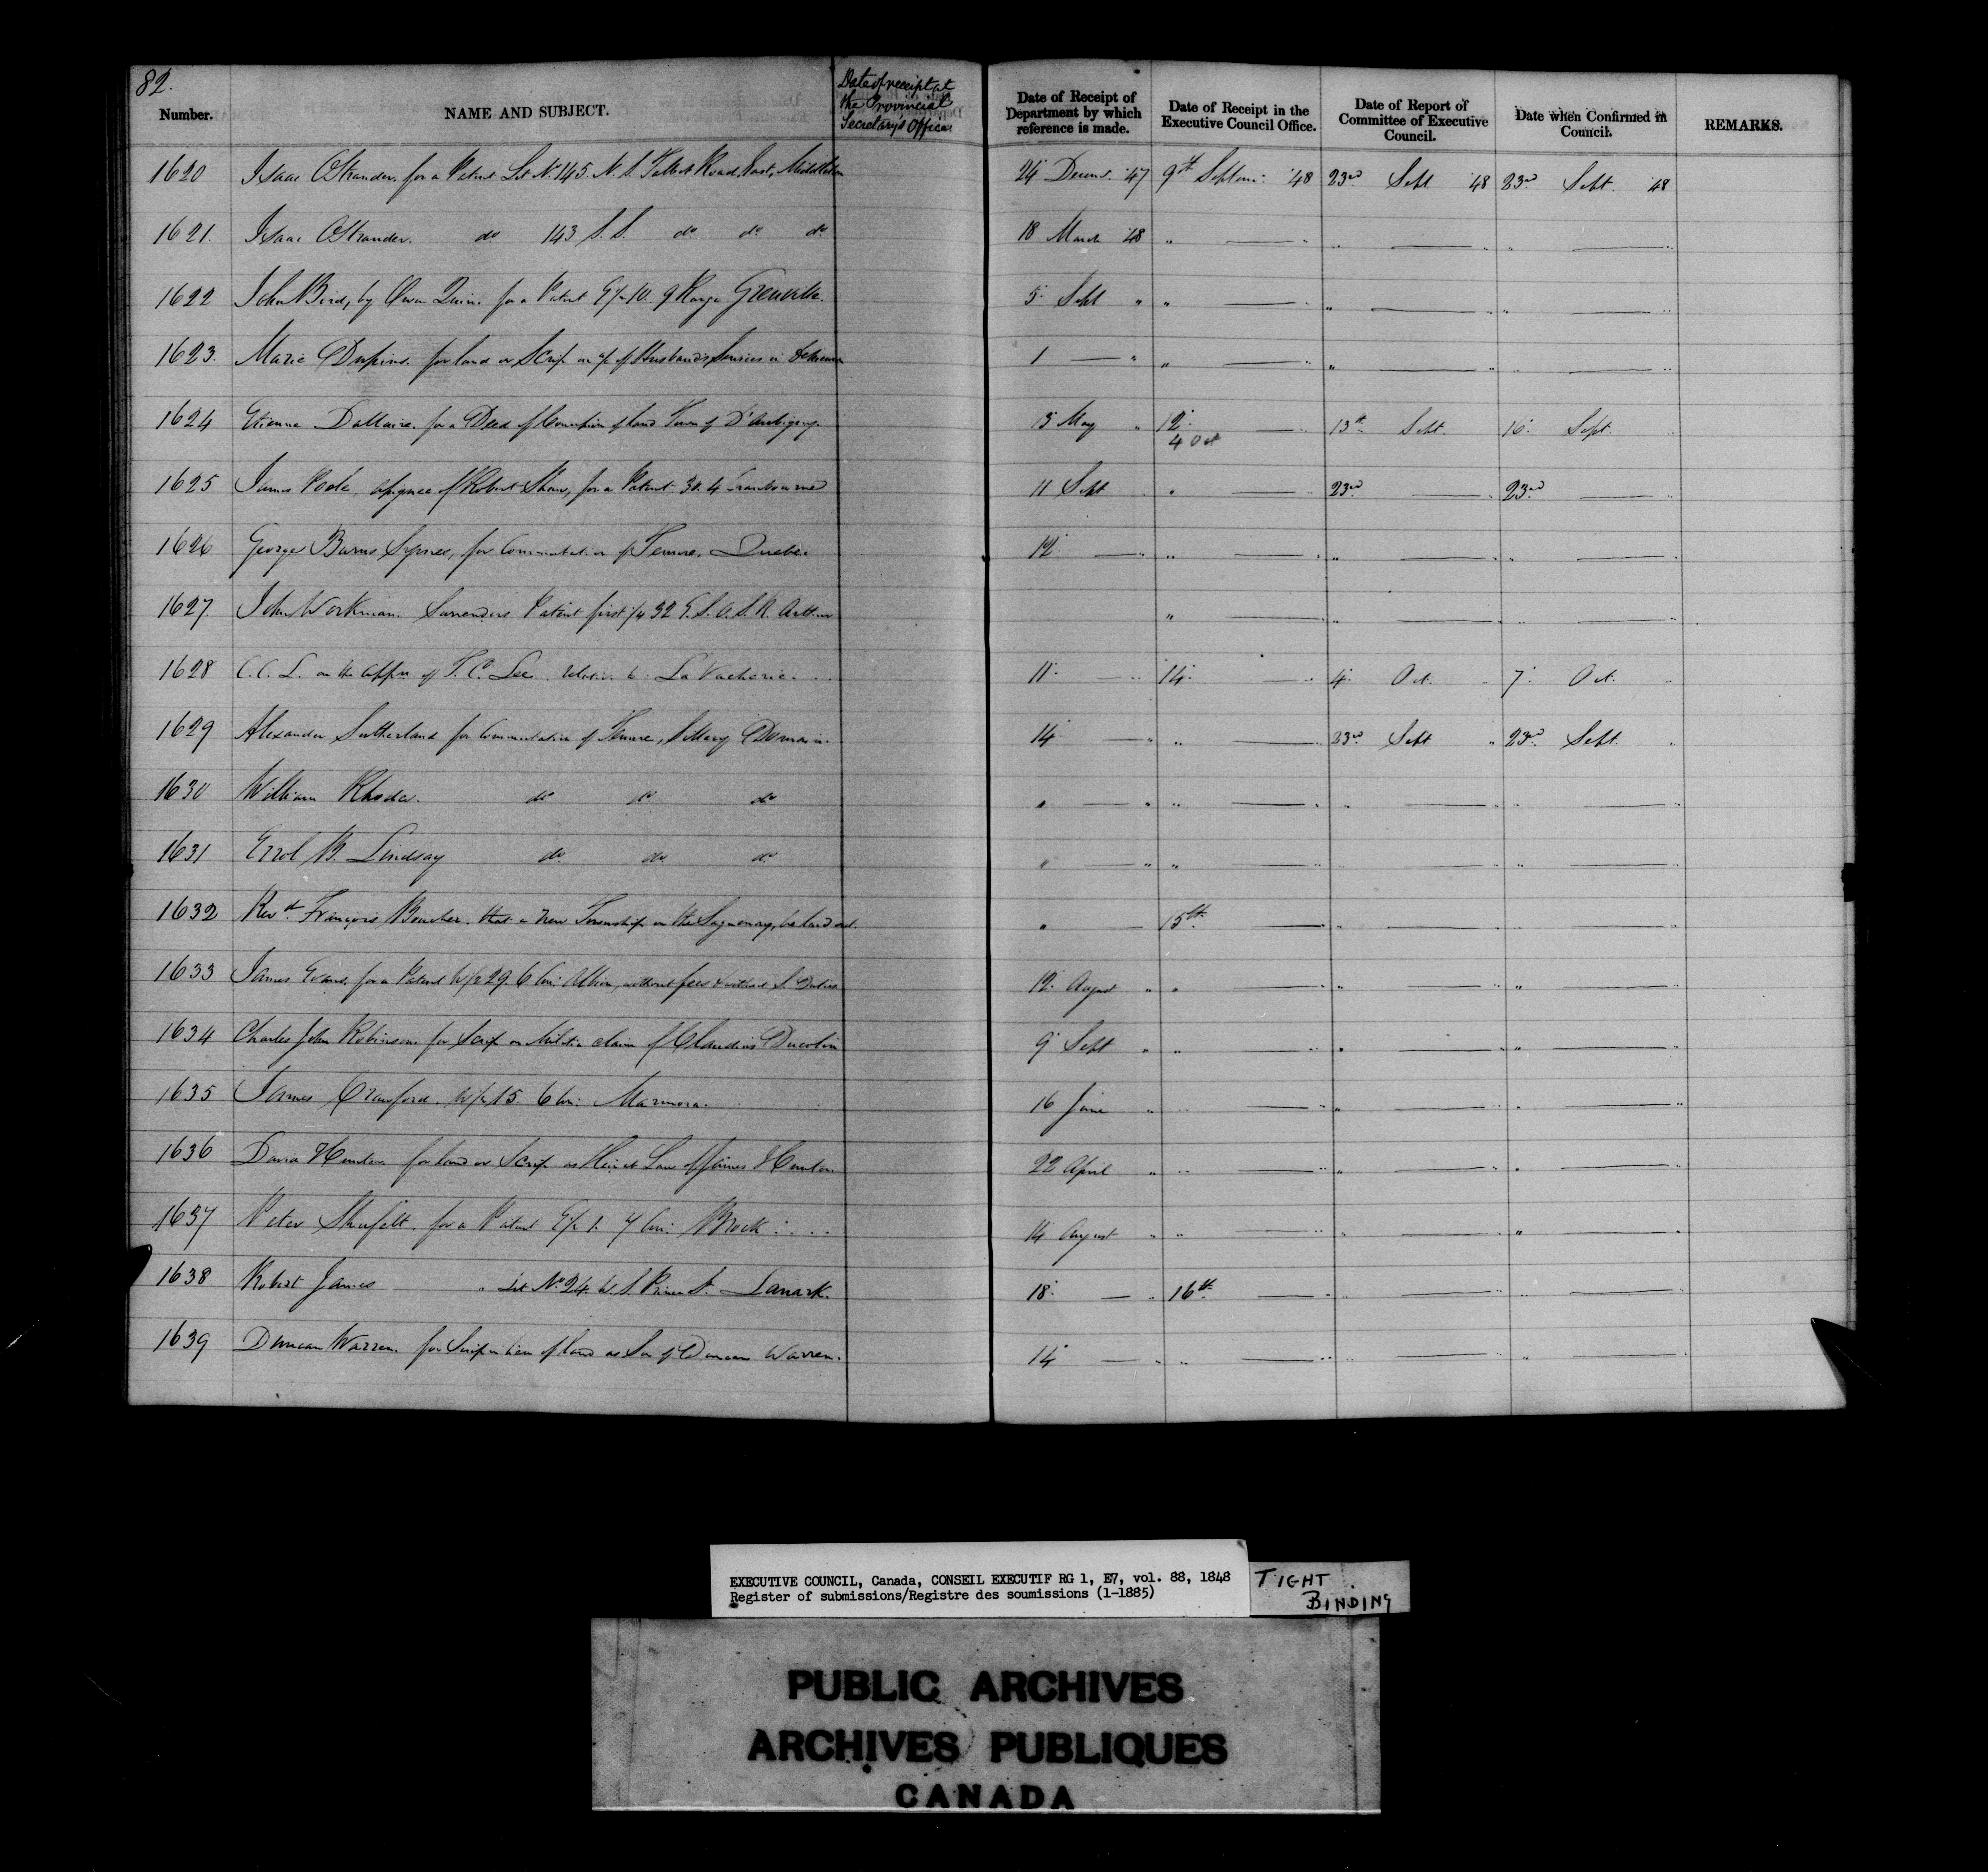 82.
Number. NAME AND SUBJECT. Date of receipt at the Provincial Secretary's Office Date of Receipt of Department by which reference is made. Date of Receipt in the Executive Council Office. Date of Report of Committee of Executive Council. Date when Confirmed in Council. REMARKS.
1620 Isaac OStrander, for a Patent Lot No. 145. N. S. Talbot Road East, Middleton 24 Decem. '47 9th Septem: '48 23rd Sept '48 23rd Sept. '48
1621. Isaac OStrander. do 143 S. S. do do do 18 March '48 " — " " — " " — "
1622 John Bird, by Owen Quinn. for a Patent E½ 10. 9 Range Grenville. 5 Sept " " — " " — " " — "
1623. Marie for land or Scrip on of Husbands Services in 1 — " " — " " — " " — "
1624 Etienne Dallaire. for a Deed of of land Town of D'Aubigny. 13 May " 12. — " 13th Sept. 16. Sept. "
4 Oct
1625 James Poole, assignee of Robert Shaw, for a Patent 30. 4 Cranbourne 11 Sept " " — " 23rd — " 23rd — "
1626 George Burns Symes, for Commutation of Tenure, Quebec 12 — " " — " " — " " — "
1627. John Workman. Surrenders Patent first ¼ 32 E. S. O. S. R. Arthur " — " " — " " — "
1628 C. C. L. on the appn of T. C. Lee relative to La Vacherie. 11. — " 14. — " 4. Oct. " 7. Oct. "
1629 Alexander Sutherland for Commutation of Tenure, Sillery Domain. 14 — " " — " 23rd Sept " 23rd Sept. "
1630 William Rhodes. do do do " — " " — " " — " " — "
1631 Errol B. Lindsay do do do " — " " — " " — " " — "
1632 Revd. François Boucher. that a New Township on the Saguenay, be laid out. " — 15th — " " — " " — "
1633 James Evans, for a Patent W½ 29. 6 Con: Albion, without fees & without S. Duties 12. August " " — " " — " " — "
1634 Charles John Robinson. for Scrip on Militia claim of Claudius 9 Sept " " — " " — " " — "
1635 James Crawford. W½ 15. 6 Con: Marmora. 16 June " " — " " — " " — "
1636 David Hunter. for land or Scrip as Heir at Law of James Hunter. 22 April " " — " " — " " — "
1637 Peter Shufelt. for a Patent E½ 1. 4 Con: Brock 14 August " " — " " — " " — "
1638 Robert James " Lot No. 24. W. S. St. Lanark. 18. — " 16th — " " — " " — "
1639 Duncan Warren. for Scrip in lieu of land as Son of Duncan Warren. 14 — " " — " " — " " — "
EXECUTIVE COUNCIL, Canada, CONSEIL EXECUTIF RG 1, E7, vol. 88, 1848
Register of submissions/Registre des soumissions (1-1885)
TIGHT BINDING
PUBLIC ARCHIVES
ARCHIVES PUBLIQUES
CANADA